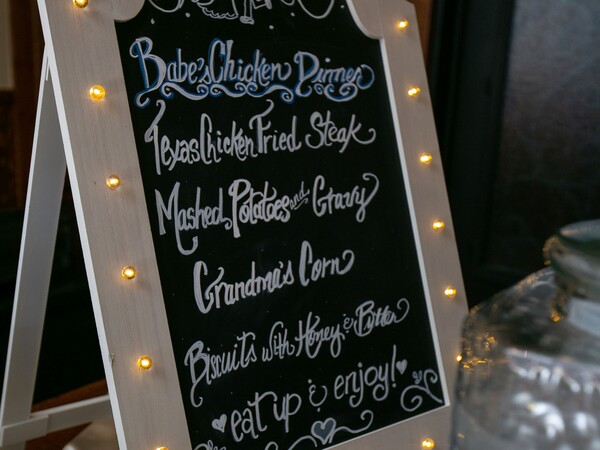 Babe's Chicken Dinner
Texas Chicken Fried Steak
Mashed Potatoes and Gravy
Grandma's Corn
Biscuits with Honey & Butter
eat up & enjoy!